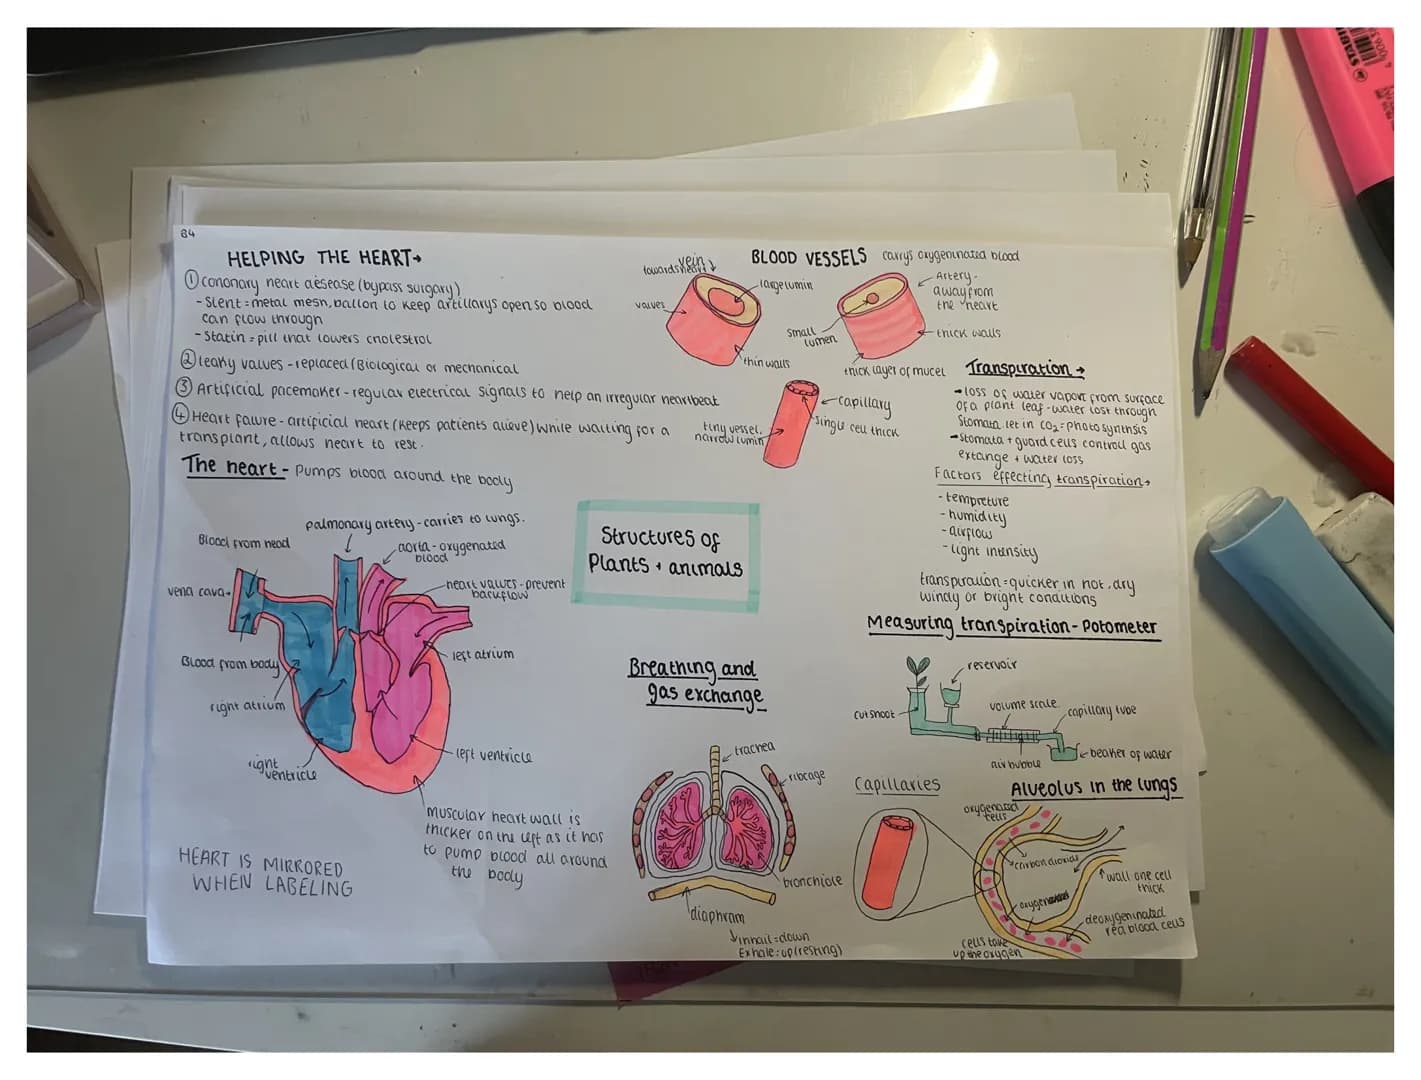 B4
HELPING THE HEART→
① cononary heart desease (bypass surgary)
- Stent = metal mesh, ballon to keep artillarys open so blood
can flow through
- Statin = pill that lowers cholestrol
② leaky valves - replaced (Biological or mechanical
③ Artificial pacemaker - regular electrical signals to help an irregular heartbeat
④ Heart failure - artificial heart (keeps patients alieve) while waiting for a
transplant, allows heart to rest.
BLOOD VESSELS
carrys oxygeninated blood
vein
towards heart
large lumin
valves
thin walls
Artery -
away from
the heart
small
lumen
thick walls
thick layer of mucel
capillary
single cell thick
tiny vessel,
narrow lumin
Transpiration →
→ loss of water vapour from surface
of a plant leaf - water lost through
Stomata let in CO₂ = photosynthsis
→ Stomata + guard cells controll gas
extange + water loss
Factors effecting transpiration→
- tempreture
- humidity
- airflow
- light intensity
transpiration = quicker in hot, dry
windy or bright conditions
The heart - Pumps blood around the body
palmonary artery - carries to lungs.
Blood from head
aorta - oxygenated
blood
vena cava
heart valves - prevent
backflow
Blood from body
left atrium
right atrium
right
ventricle
left ventricle
muscular heart wall is
thicker on the left as it has
to pump blood all around
the body
HEART IS MIRRORED
WHEN LABELING
Structures of
Plants + animals
Breathing and
gas exchange
trachea
ribcage
bronchiole
diaphram
↓ inhail = down
Exhale = up (resting)
Measuring transpiration - Potometer
reservoir
cut shoot
volume scale
capillary tube
air bubble
beaker of water
Capillaries
Alveolus in the lungs
oxygenated
cells
carbon dioxide
wall one cell
thick
deoxygeninated
red blood cells
cells take
up the oxygen
STABILO